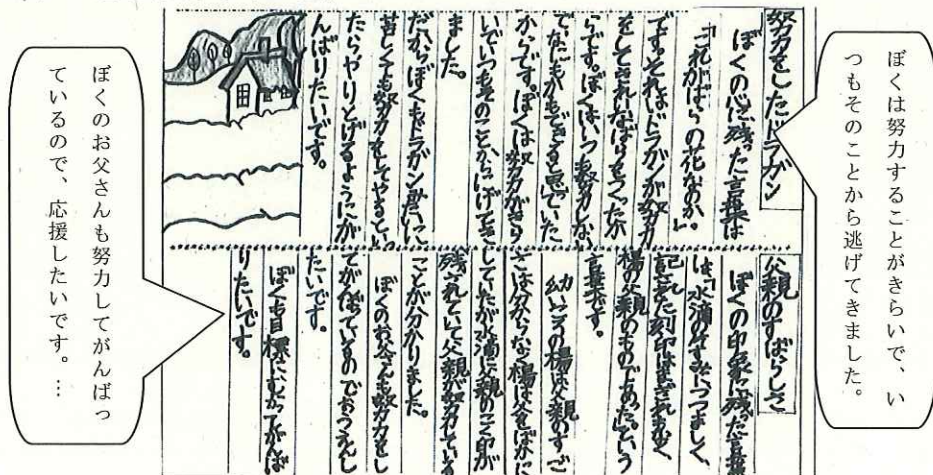 ぼくは努力することがきらいで、い
つもそのことから逃げてきました。
努力をしたドラガン
ぼくの心に残った言葉は
「これがばらの花なのか。」
です。それはドラガンが努力
をしてきれいなばらをつくったか
らです。ぼくはいつも努力しない
で、なにもかもできると思でいた
からです。ぼくは努力がきら
いでいつもそのことからにげてき
ました。
だからぼくもドラガン
苦しくても努力をしてやるとい
たらやりとげるようにが
んばりたいです。
父親のすばらしさ
ぼくの印象に残った言葉
は、「水滴の
記された刻印はまぎれもなく
楊の父親のものであった。」という
言葉です。
幼いころの楊は父親のすご
さは分からなく楊は父をばかに
していたが水滴に父親のこく印が
残されていて父親が努力している
ことが分かりました。
ぼくのお父さんも努力をし
てがんばっているのでおうえんし
たいです。
ぼくも目標にむかってがんば
りたいです。
ぼくのお父さんも努力してがんばっ
ているので、応援したいです。…